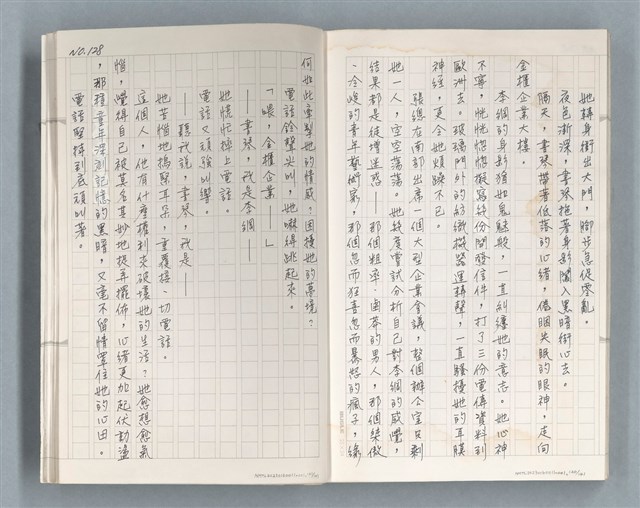 她轉身衝出大門，腳步急促零亂。
夜色漸深，書琴拖著身影闖入黑暗街心去。
隔天，書琴帶著低落的心緒，倦睏失眠的眼神，走向
金權企業大樓。
李綱的身影猶如鬼魅般，一直糾纏她的意志。她心神
不寧，恍恍惚惚擬寫幾份開發信件，打了三份電傳資料到
歐洲去。玻璃門外的紡織機器運轉聲，一直騷擾她的耳膜
神經，更令她煩躁不已。
張總在南部出席一個大型企業會議，整個辦公室只剩
她一人，空空蕩蕩。她幾度嘗試分析自己對李綱的感覺，
結果都是徒增迷惑——那個粗率、鹵莽的男人，那個桀傲
、冷峻的青年藝術家，那個忽而狂喜忽而暴怒的瘋子，緣
NO.128
何如此牽掣她的情感？困擾她的夢境？
電話鈴聲尖叫，她嚇得跳起來。
「喂，金權企業——」
——書琴，我是李綱——
她慌忙掛上電話。
電話又頑強叫響。
——聽我說，書琴，我是——
她苦惱地摀緊耳朵，重覆接、切電話。
這個人，他有什麼權利來破壞她的生活？她愈想愈氣
惱，覺得自己被莫名其妙地捉弄擺佈，心緒更加起伏動盪
，那種童年深刻記憶的黑暗，又毫不留情罩住她的心田。
電話堅持到底頑叫著。